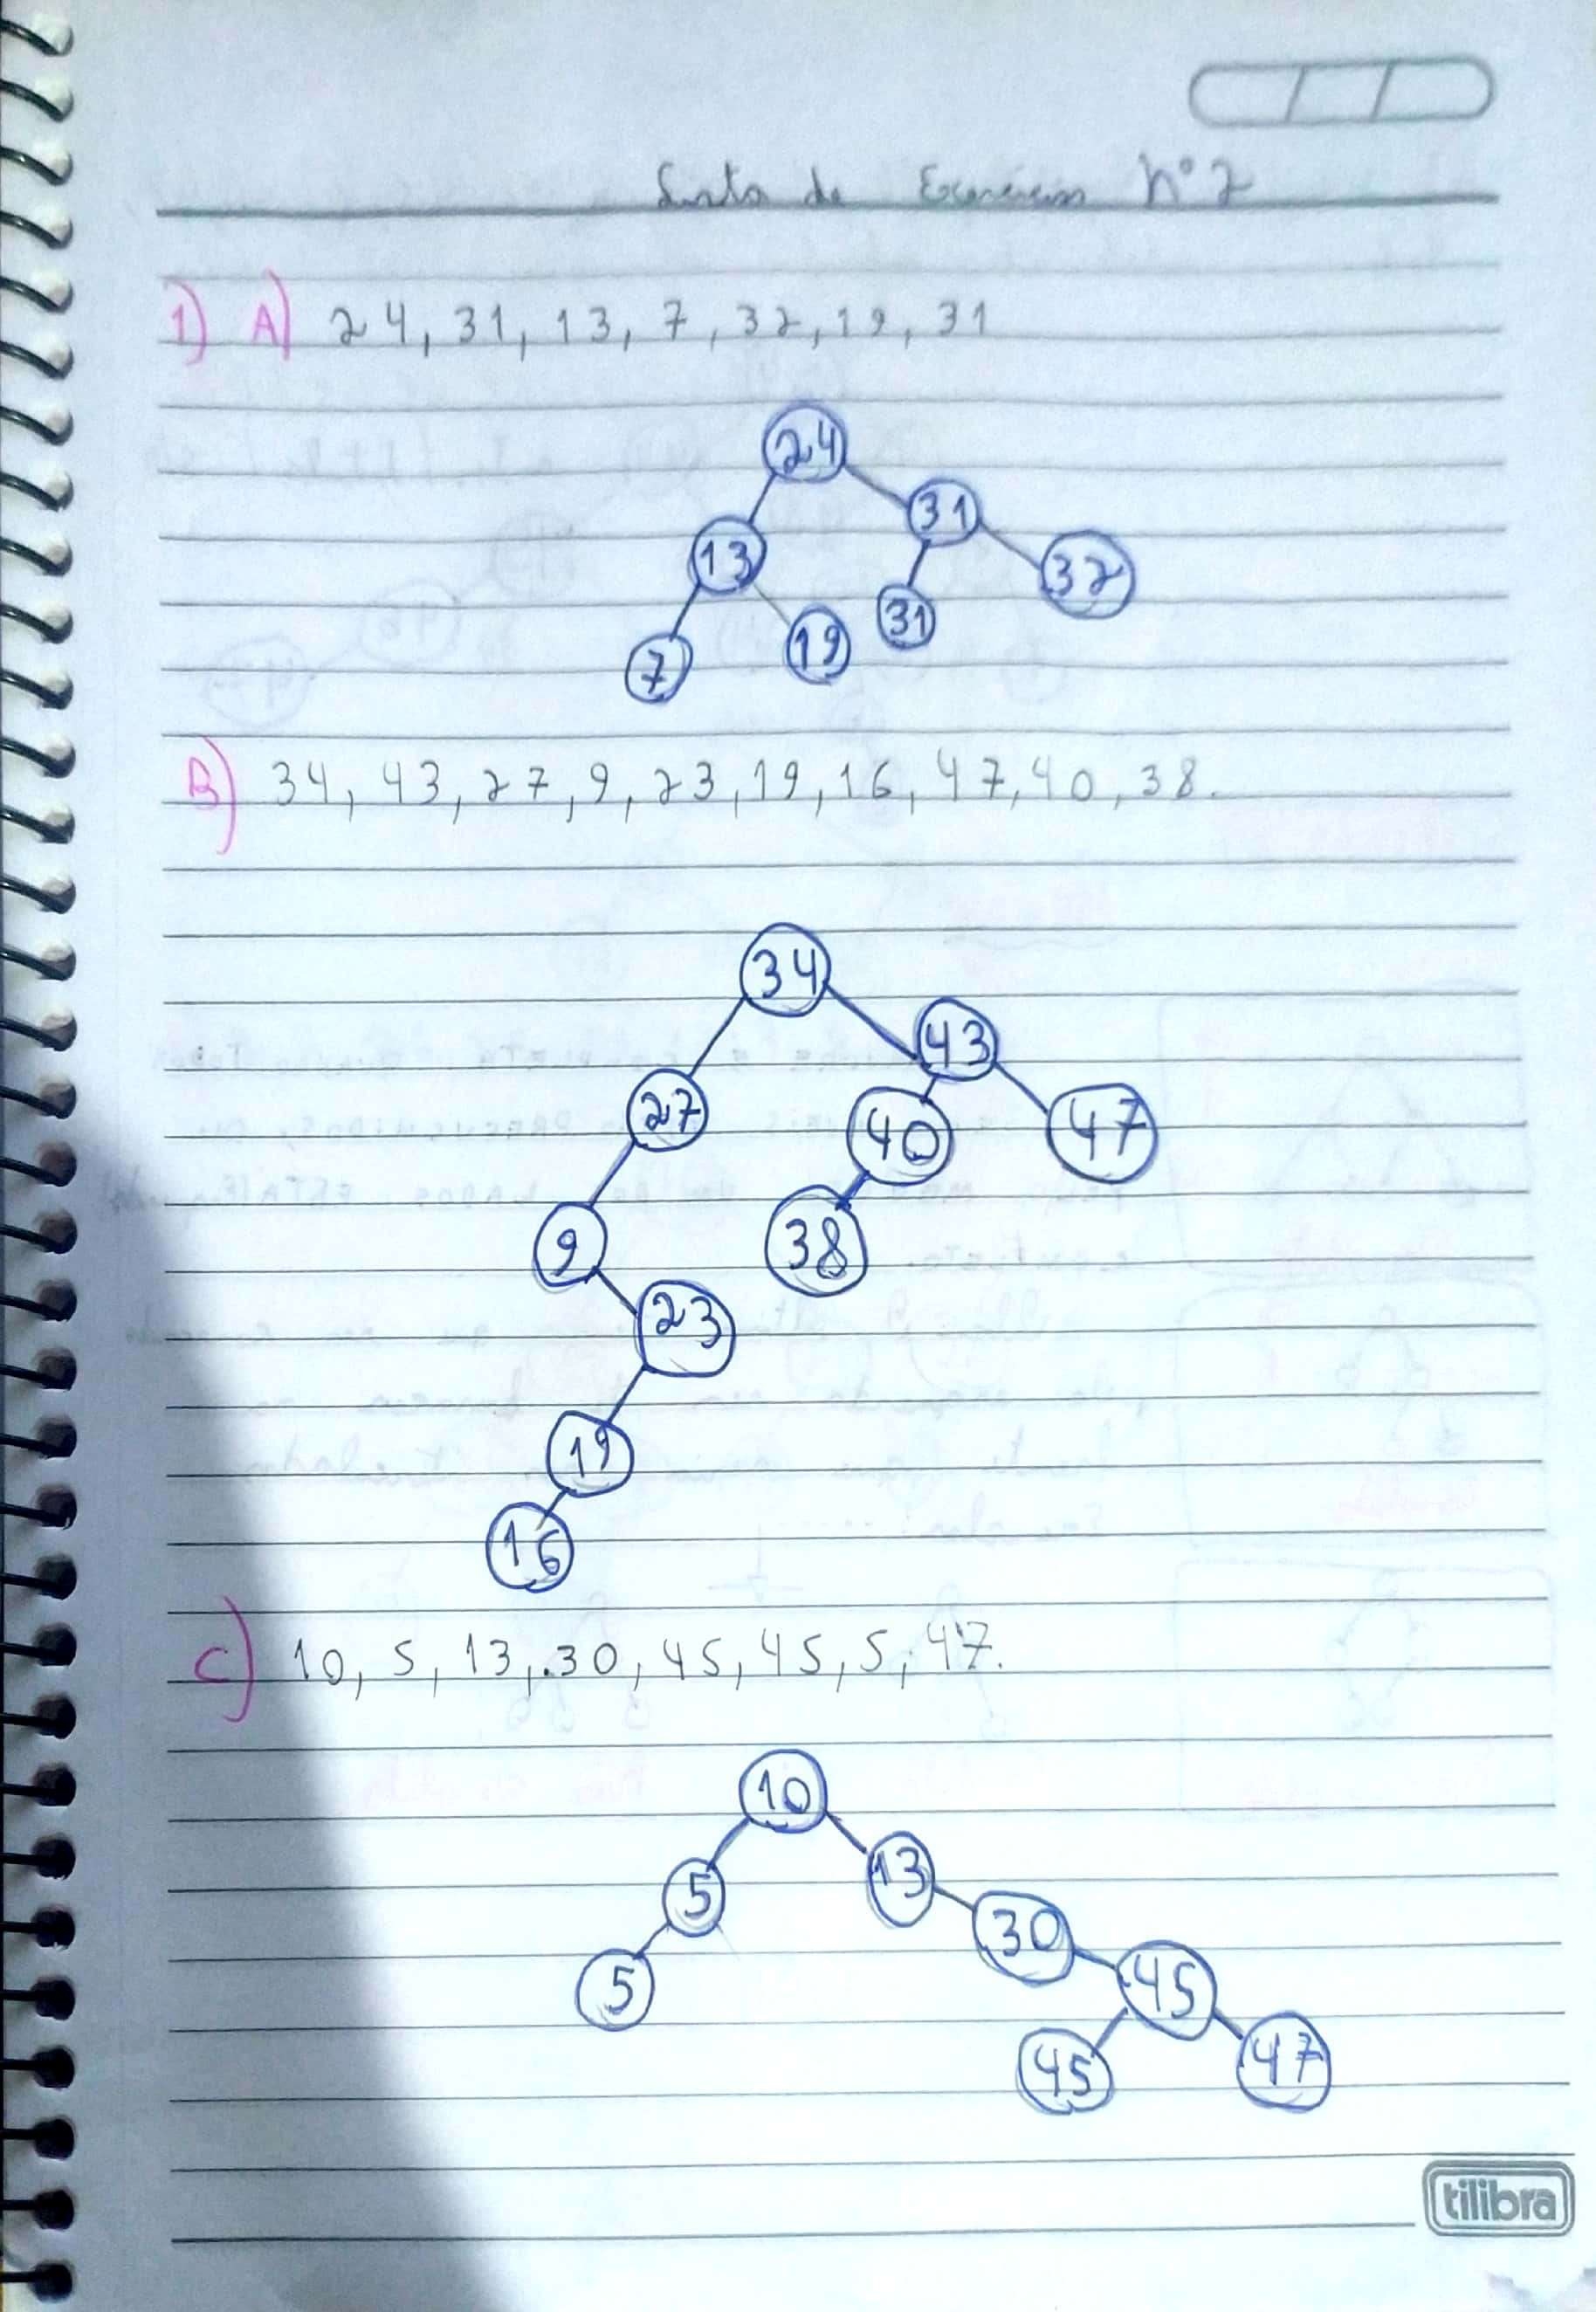 Lista de Exercícios Nº 2
1) A) 24, 31, 13, 7, 32, 19, 31
24
31
13
32
31
19
7
B) 34, 43, 27, 9, 23, 19, 16, 47, 40, 38.
34
43
27
40
47
9
38
23
19
16
C) 10, 5, 13, 30, 45, 45, 5, 47.
10
13
5
30
5
45
45
47
tilibra